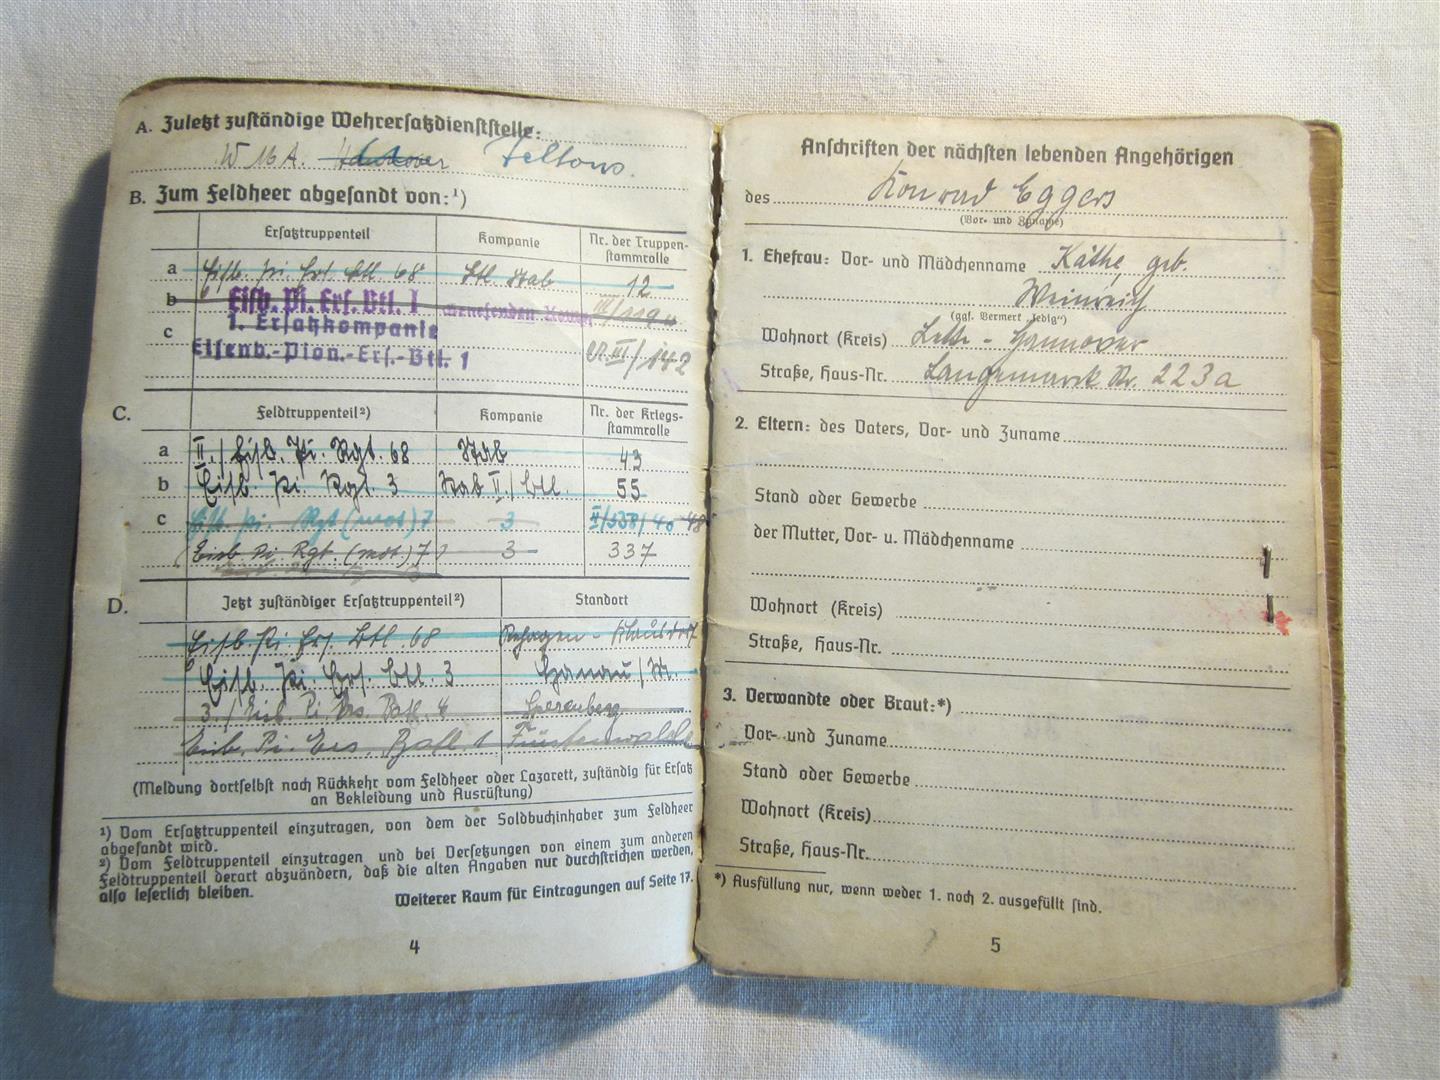 A. Zuletzt zuständige Wehrersatzdienststelle:
W.M.A. Hannover Teltow.
B. Zum Feldheer abgesandt von:¹)
Ersatztruppenteil Kompanie Nr. der Truppenstammrolle
a Eisb. Pi. Ers. Btl. 68 Btl. Stab 12
b Eisb. Pi. Ers. Btl. I Genesenden Komp.
1. Ersatzkompanie
c Eisenb.-Pion.-Ers.-Btl. 1 III/142
C. Feldtruppenteil²) Kompanie Nr. der Kriegsstammrolle
a II./Eisb. Pi. Rgt. 68 Stab 43
b Eisb. Pi. Rgt. 3 Stab II./Btl. 55
c Eisb. Pi. Rgt (mot) 7 3 II/338/40
Eisb Pi Rgt. (mot.) 7 3 337
D. Jetzt zuständiger Ersatztruppenteil²) Standort
Eisb. Pi. Ers. Btl. 68 Rehagen-Klausdorf
Eisb. Pi. Ers. Btl. 3 Hanau/M.
3./Eisb. Pi. Ers. Btl. 4 Sperenberg
Eisb. Pi. Ers. Batl 1 Fürstenwalde
(Meldung dortselbst nach Rückkehr vom Feldheer oder Lazarett, zuständig für Ersatz
an Bekleidung und Ausrüstung)
¹) Vom Ersatztruppenteil einzutragen, von dem der Soldbuchinhaber zum Feldheer
abgesandt wird.
²) Vom Feldtruppenteil einzutragen und bei Versetzungen von einem zum anderen
Feldtruppenteil derart abzuändern, daß die alten Angaben nur durchstrichen werden,
also leserlich bleiben.
Weiterer Raum für Eintragungen auf Seite 17.
4
Anschriften der nächsten lebenden Angehörigen
des Konrad Eggers
(Vor- und Zuname)
1. Ehefrau: Vor- und Mädchenname Käthe geb.
Weinreich
(ggf. Vermerk „ledig“)
Wohnort (Kreis) Hannover
Straße, Haus-Nr. Langemarckstr. 223a
2. Eltern: des Vaters, Vor- und Zuname
Stand oder Gewerbe
der Mutter, Vor- u. Mädchenname
Wohnort (Kreis)
Straße, Haus-Nr.
3. Verwandte oder Braut:*)
Vor- und Zuname
Stand oder Gewerbe
Wohnort (Kreis)
Straße, Haus-Nr.
*) Ausfüllung nur, wenn weder 1. noch 2. ausgefüllt sind.
5